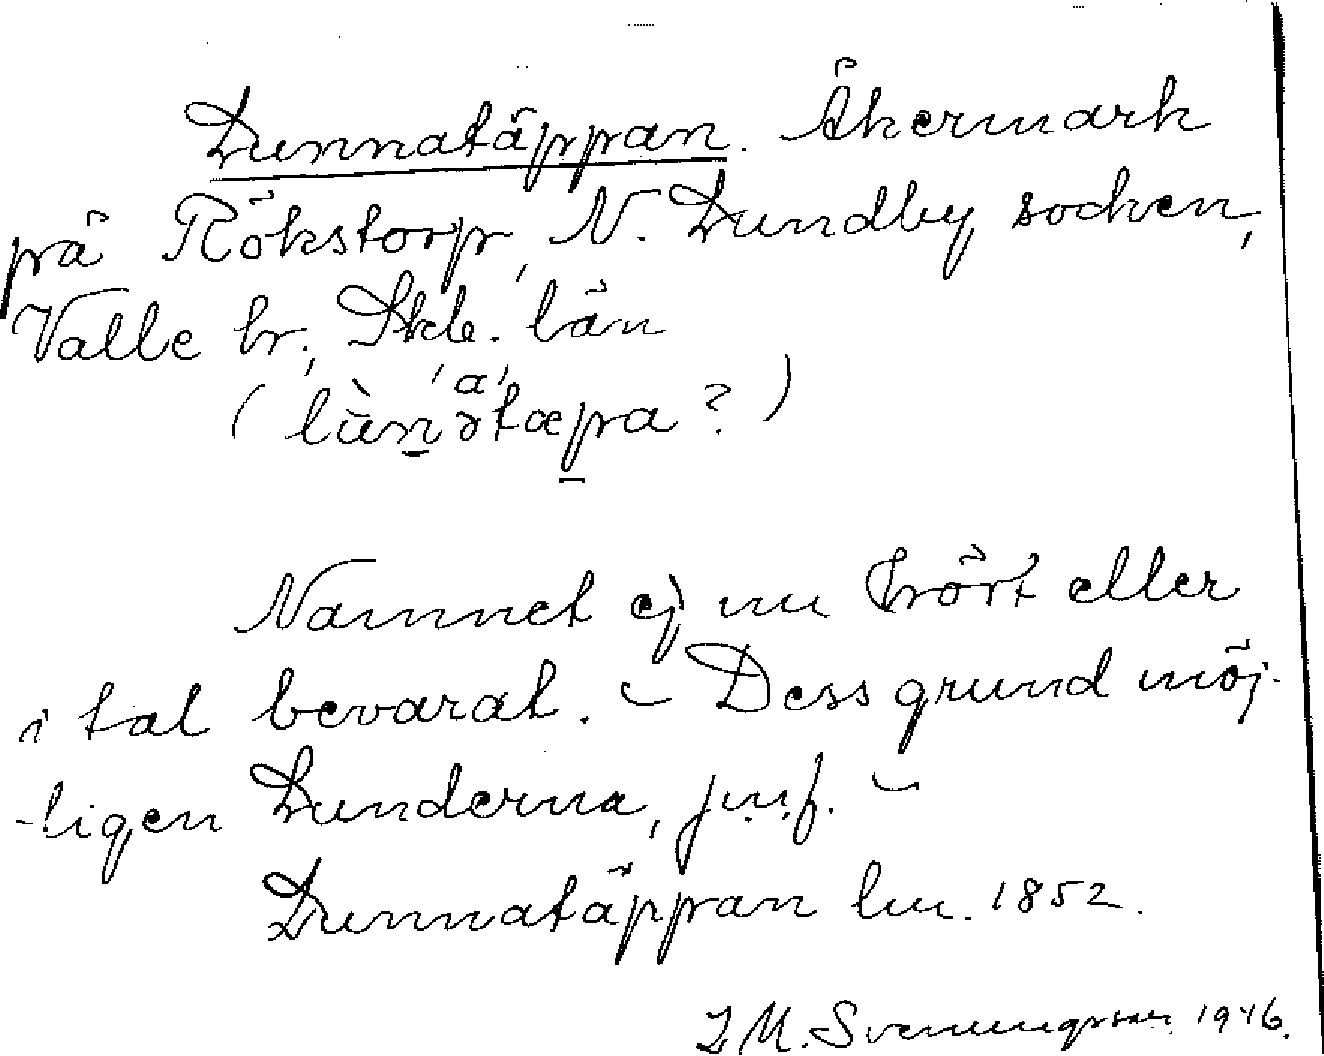 Lunnatäppan. Åkermark
på Rökstorp, N. Lundby socken,
Valle hr., Skb. län
(lùn̠ətæp̠a ?)
'a'
Namnet ej nu hört eller
i tal bevarat. – Dess grund möj-
-ligen Lunderna, jmf. –
Lunnatäppan lm. 1852.
J M. Svenungsson 1946.